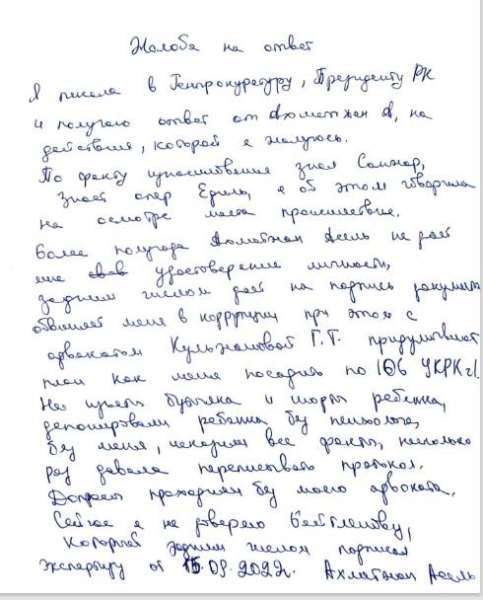 Жалоба на ответ
Я писала в Генпрокуратуру, Президенту РК
и получаю ответ от Ахметжан А, на
действия, которой я жалуюсь.
По факту изнасилования знал Санжар,
знает опер Ерлан, я об этом говорила
на осмотре места происшествие.
Более полугода Ахметжан Асель не дает
мне удостоверение личности,
задним числом дает на подпись документы
обвиняет меня в коррупции при этом с
адвокатом Кульжановой Г.Т. придумывают
план как меня посадить по УКРК
Не изъяты бутылка и шорты ребенка,
депонировали ребенка без психолога,
без меня, исказили все факты, несколько
раз давала переписывать протокол.
Допросы проходили без моего адвоката.
Сейчас я не доверяю
который задним числом подписал
экспертизу от 15.09.2022г. Асель